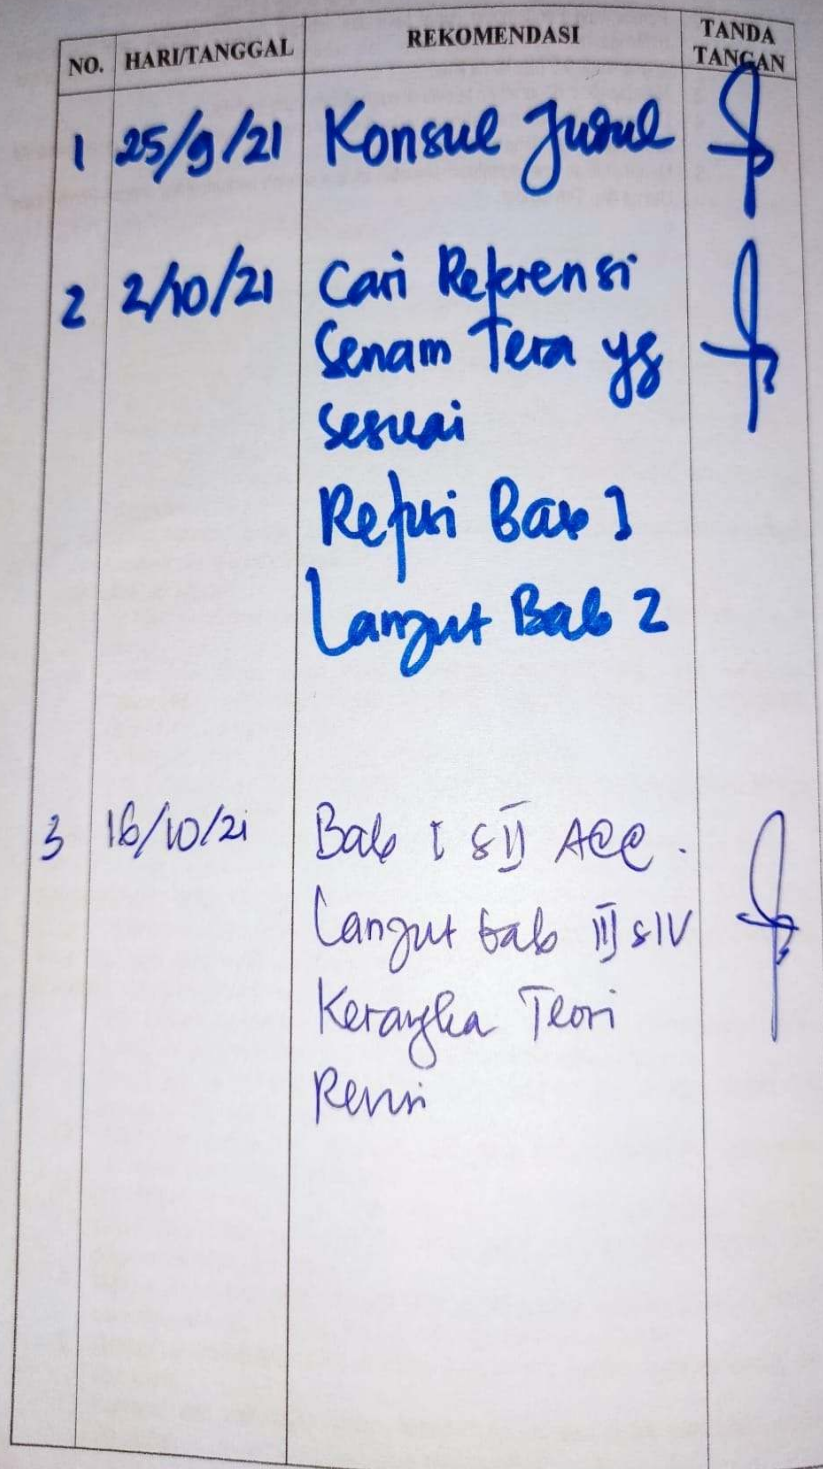 NO. HARI/TANGGAL REKOMENDASI TANDA TANGAN
1 25/9/21 Konsul Judul
2 2/10/21 Cari Referensi
Senam Tera yg
sesuai
Refisi Bab 1
Lanjut Bab 2
3 16/10/21 Bab I & II ACC.
Lanjut bab III & IV
Kerangka Teori
Revisi